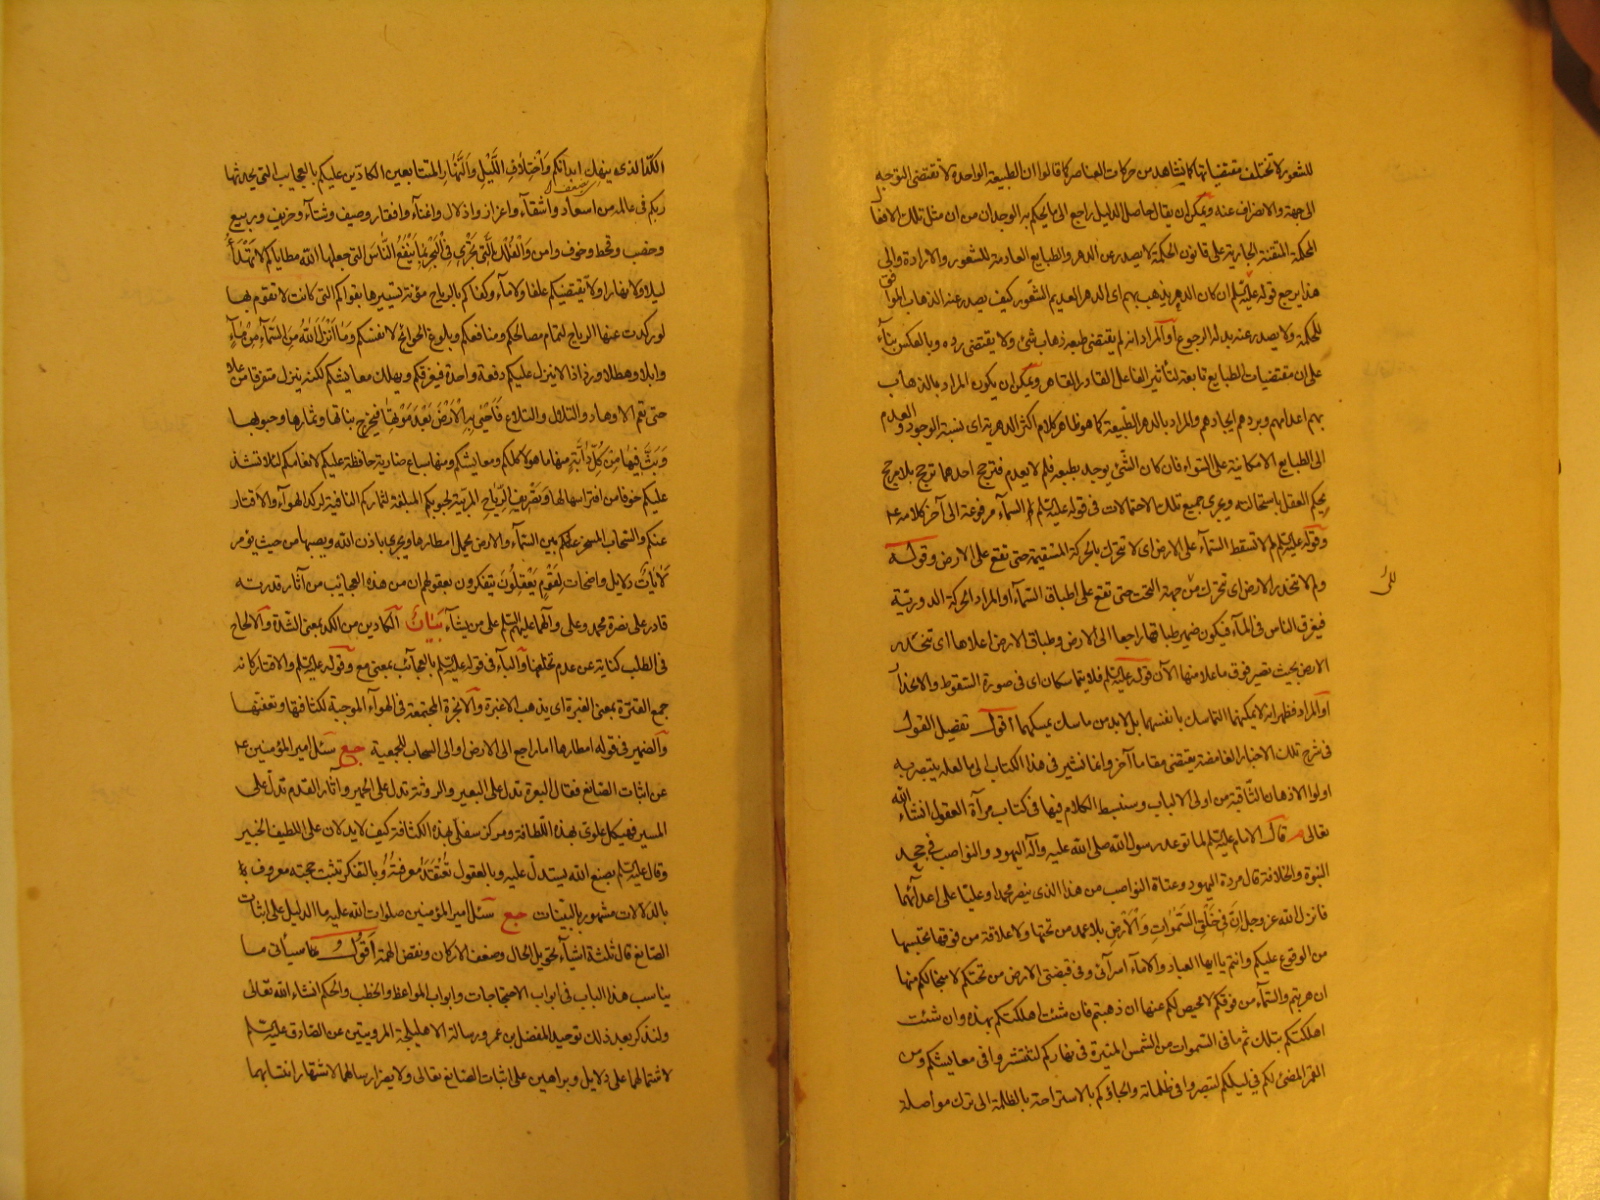 للشعور لا تختلف مقتضياتها كما نشاهد من حركات العناصر كما قالوا ان الطبيعة الواحدة لا تقتضى التوجه
الى جهة والانصراف عنه ويمكن ان يقال حاصل الدليل راجع الى ما يحكم به الوجدان من ان مثل تلك الافعال
المحكمة المتقنة الجارية على قانون الحكمة لا يصدر عن الدهر والطبايع العادمة للشعور والارادة والى
هذا يرجع قوله عليه السلم ان كان الدهر يذهب بهم اى الدهر العديم الشعور كيف يصدر عنه الذهاب الموافق
للحكمة ولا يصدر عنه بدله الرجوع او المراد انه لم يقتضى طبعه ذهاب شئ ولا يقتضى رده وبالعكس بناء
على ان مقتضيات الطبايع تابعة لتأثير الفاعل القادر القاهر ويمكن ان يكون المراد بالذهاب
بهم اعدامهم وبردهم ايجادهم والمراد بالدهر الطبيعة كما هو ظاهر كلام اكثر الدهرية اى نسبة الوجود والعدم
الى الطبايع الامكانية على السواء فان كان الشئ يوجد بطبعه فلم لا يعدم فترجح احدهما ترجح بلا مرجح
يحكم العقل باستحالته ويجرى جميع تلك الاحتمالات فى قوله عليه السلم لم السماء مرفوعة الى آخر كلامه ع
وقوله عليه السلم لم لا تسقط السماء على الارض اى لا تتحرك بالحركة المستقيمة حتى تقع على الارض وقوله
ولم لا تنحدر الارض اى تتحرك من جهة التحت حتى تقع على اطباق السماء او المراد الحركة الدورية
فيغرق الناس فى الماء فيكون ضمير طباقها راجعا الى الارض وطباق الارض اعلاها اى تنحدر
الارض بحيث تصير فوق ما علا منها الآن قوله عليه السلم فلا يتماسكان اى فى صورة السقوط والانحدار
او المراد فظهر انه لا يمكنهما التماسك بانفسهما بل لا بد من ماسك يمسكهما اقول تفصيل القول
فى شرح تلك الاخبار الغامضة يقتضى مقاما آخر وانما نشير فى هذا الكتاب الى ما لعله يتبصر به
اولوا الاذهان الثاقبة من اولى الالباب وسنبسط الكلام فيها فى كتاب مرآة العقول انشاء الله
تعالى م قال الامام عليه السلم لما توعد رسول الله صلى الله عليه وآله اليهود والنواصب فى جحد
النبوة والخلافة قال مردة اليهود وعتاة النواصب من هذا الذى ينصر محمدا وعليا على اعدائهما
فانزل الله عز وجل ان فى خلق السموات والارض بلا عمد من تحتها ولا علاقة من فوقها تحبسها
من الوقوع عليكم وانتم يا ايها العباد والاماء اسرائى وفى قبضتى الارض من تحتكم لا منجا لكم منها
ان هربتم والسماء من فوقكم لا محيص لكم عنها ان ذهبتم فان شئت اهلكتكم بهذه وان شئت
اهلكتكم بتلك ثم ما فى السموات من الشمس المنيرة فى نهاركم لتنتشروا فى معايشكم ومن
القمر المضئ لكم فى ليلكم لتبصروا فى ظلماته والجاؤكم بالاستراحة بالظلمة الى ترك مواصلة
الكد الذى ينهك ابدانكم واختلاف الليل والنهار المتتابعين الكادين عليكم بالعجايب التى يحدثها
ربكم فى عالمه من اسعاد واشقاء واعزاز واذلال واغناء وافقار وصيف وشتاء وخريف وربيع
وخصب وقحط وخوف وامن والفلك التى تجرى فى البحر بما ينفع الناس التى جعلها الله مطاياكم لا تهدأ
ليلا ولا نهارا ولا تقتضيكم علفا ولا ماء وكفاكم بالرياح مؤنة تسييرها بقواكم التى كانت لا تقوم بها
لو ركدت عنها الرياح لتمام مصالحكم ومنافعكم وبلوغ الحوائج لانفسكم وما انزل الله من السماء من ماء
وابلا وهطلا ورذاذا لا ينزل عليكم دفعة واحدة فيغرقكم ويهلك معايشكم لكنه ينزل متفرقا من علا
حتى تعم الاوهاد والتلال والتلاع فاحيى به الارض بعد موتها فيخرج نباتها وثمارها وحبوبها
وبث فيها من كل دابة منها ما هو لاكلكم ومعايشكم ومنها سباع ضارية حافظة عليكم لانعامكم لئلا تشذ
عليكم خوفا من افتراسها لها وتصريف الرياح المربية لحبوبكم المبلغة لثماركم النافية لركد الهواء والاقتار
عنكم والسحاب المسخر بين السماء والارض يحمل امطارها ويجرى باذن الله ويصبها من حيث يؤمر
لآيات دلايل واضحات لقوم يعقلون يتفكرون بعقولهم ان من هذه العجايب من آثار قدرته
قادر على نصرة محمد وعلى وآلهما عليهم السلم على من يشاء بيان الكادين من الكد بمعنى الشدة والالحاح
فى الطلب كناية عن عدم تخلفها والباء فى قوله عليه السلم بالعجائب بمعنى مع وقوله عليه السلم والاقتار كانه
جمع القترة بمعنى الغبرة اى يذهب الاغبرة والابخرة المجتمعة فى الهواء الموجبة لكثافتها وتعفنها
والضمير فى قوله امطارها اما راجع الى الارض او الى السحاب للجمعية جع سئل امير المؤمنين ع
عن اثبات الصانع فقال البعرة تدل على البعير والروثة تدل على الحمير وآثار القدم تدل على
المسير فهيكل علوى بهذه اللطافة ومركز سفلى بهذه الكثافة كيف لا يدلان على اللطيف الخبير
وقال عليه السلم بصنع الله يستدل عليه وبالعقول تعتقد معرفته وبالتفكر تثبت حجته معروف
بالدلالات مشهور بالبينات جع سئل امير المؤمنين صلوات الله عليه ما الدليل على اثبات
الصانع قال ثلثة اشياء تحويل الحال وضعف الاركان ونقض الهمة اقول وسيأتى ما
يناسب هذا الباب فى ابواب الاحتجاجات وابواب المواعظ والخطب والحكم انشاء الله تعالى
ولنذكر بعد ذلك توحيد المفضل بن عمر ورسالة الاهليلجة المرويتين عن الصادق عليه السلم
لاشتمالهما على دلايل وبراهين على اثبات الصانع تعالى ولا يضر ارسالهما لاشتهار انتسابهما